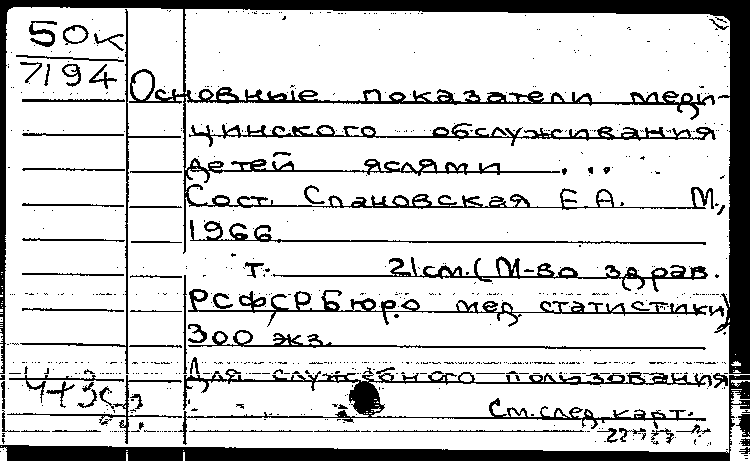 50к
7194
Основные показатели меди-
цинского обслуживания
детей яслями ...
Сост. Спановская Е.А. М.,
1966.
т. 21см. (М-во здрав.
РСФСР. Бюро мед. статистики)
300 экз.
Для служебного пользования
См. след. карт.